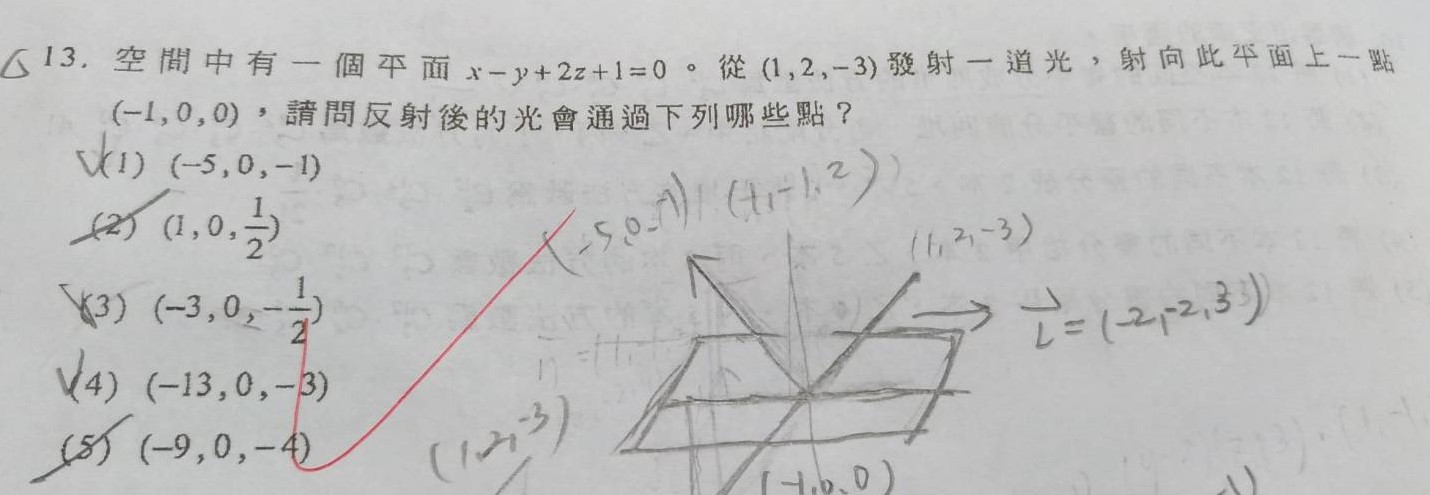 13. 空間中有一個平面 x−y+2z+1=0。從 (1,2,−3) 發射一道光，射向此平面上一點
(−1,0,0)，請問反射後的光會通過下列哪些點？
(1) (−5,0,−1)
(2) (1,0,1/2)
(3) (−3,0,−1/2)
(4) (−13,0,−3)
(5) (−9,0,−4)
(1,-1,2)
(1,2,-3)
L=(-2,-2,3)
(1,2,-3)
(-1,0,0)